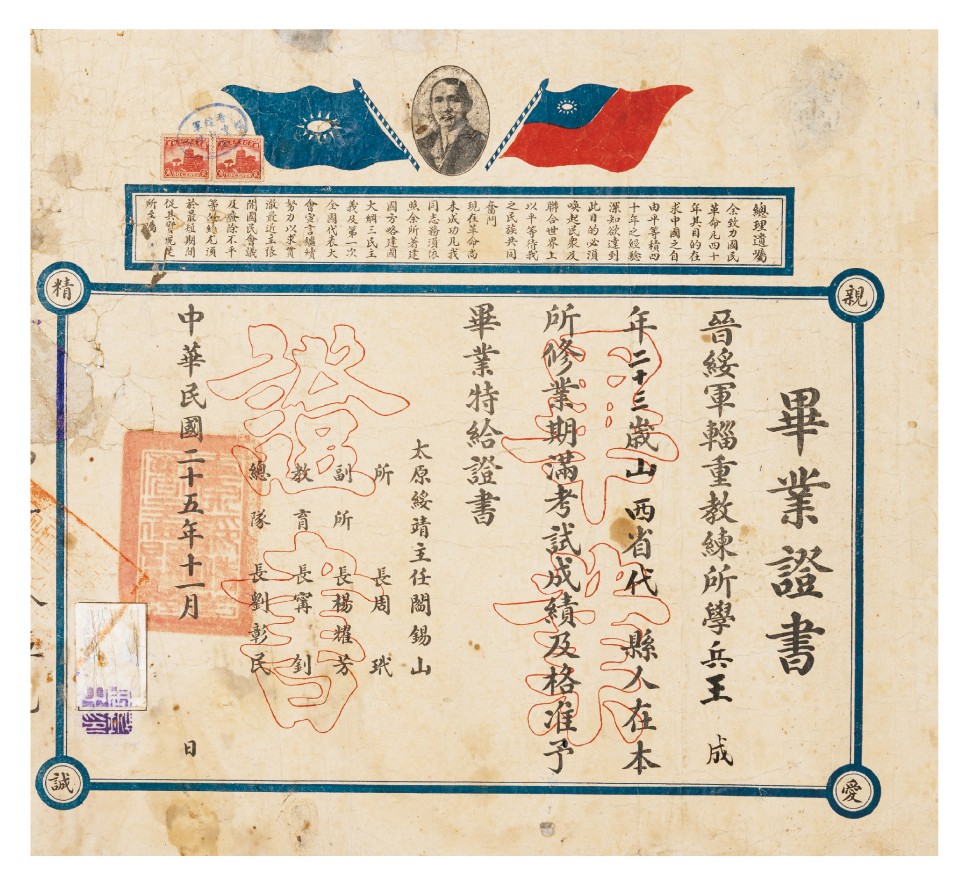 總理遺囑
余致力國民
革命凡四十
年其目的在
求中國之自
由平等積四
十年之經驗
深知欲達到
此目的必須
喚起民眾及
聯合世界上
以平等待我
之民族共同
奮鬥
現在革命尚
未成功凡我
同志務須依
照余所著建
國方略建國
大綱三民主
義及第一次
全國代表大
會宣言繼續
努力以求貫
澈最近主張
開國民會議
及廢除不平
等條約尤須
於最短期間
促其實現是
所至囑
親
愛
精
誠
畢業證書
晉綏軍輜重教練所學兵王成
年二十三歲山西省代縣人在本
所修業期滿考試成績及格准予
畢業特給證書
太原綏靖主任閻錫山
所長周玳
副所長楊耀芳
教育長寗釗
總隊長劉彰民
中華民國二十五年十一月 日
畢業
證書